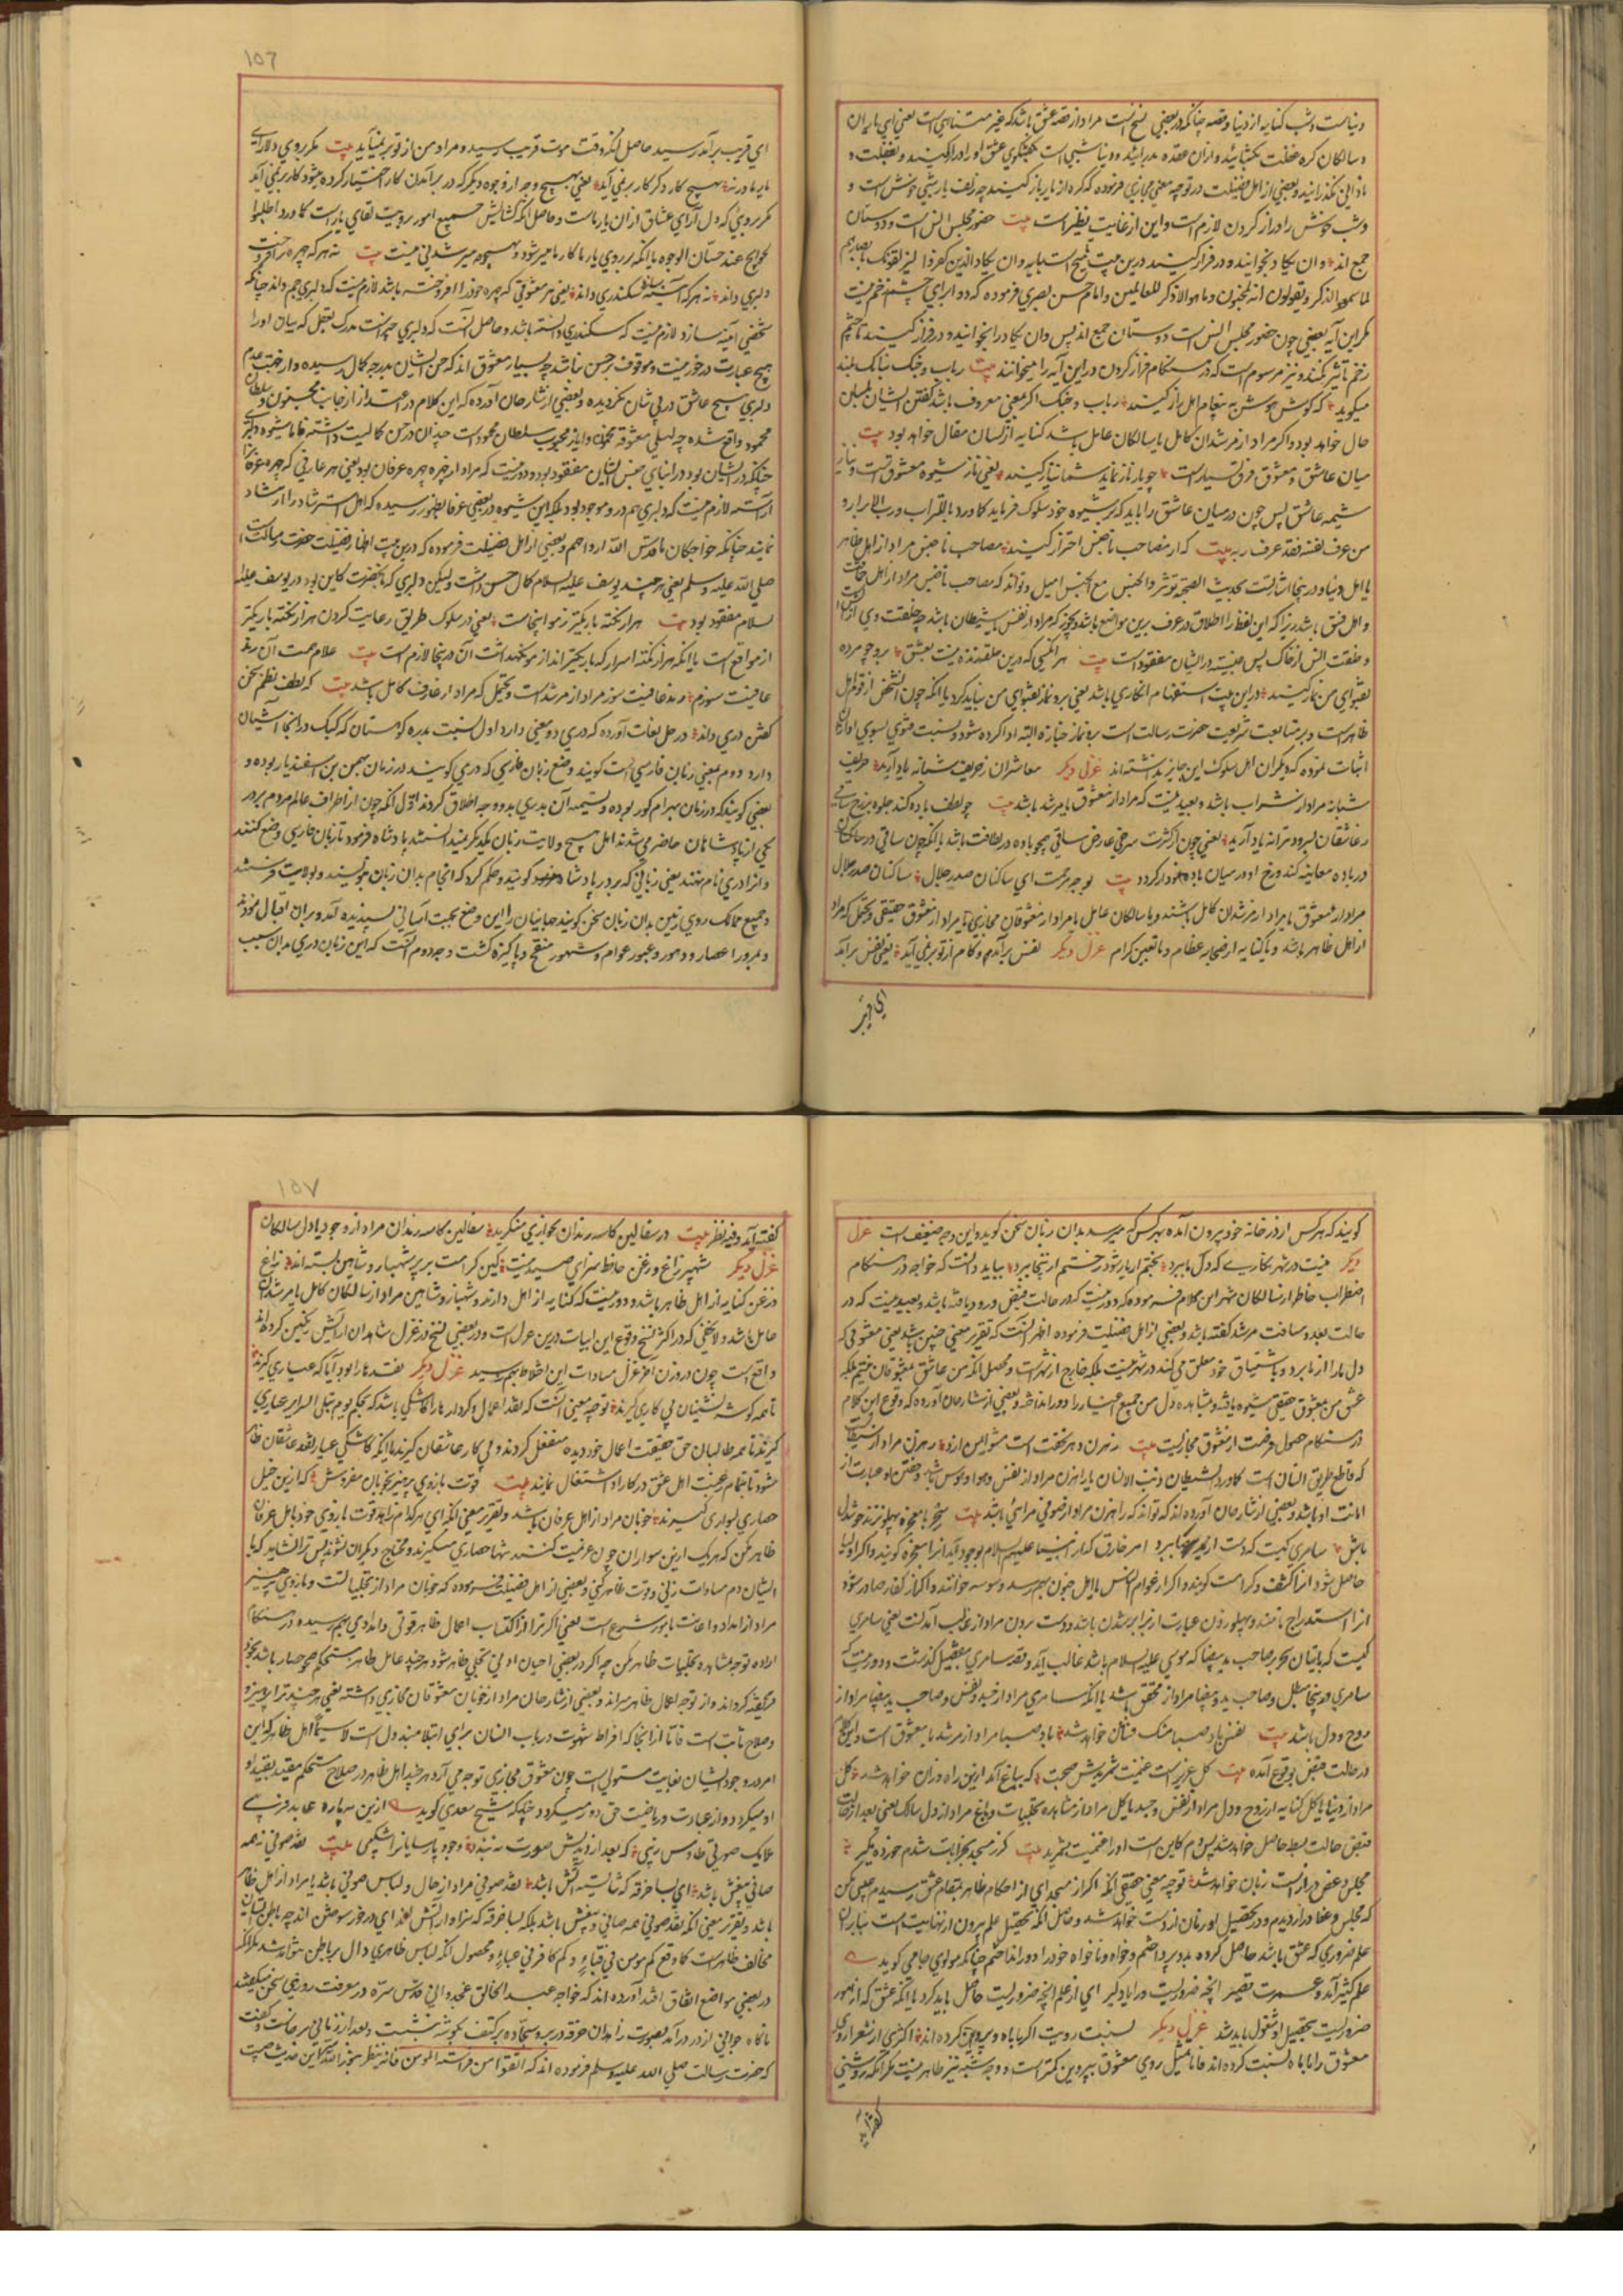 دنیاست و شب کنایه از دنیا و قصه چنانکه در بعضی نسخ است مراد از قصه عشق باشد که غیر متناهی است یعنی ای یاران
و سالکان گره غفلت بگشائید و ازان عقده بدر آئید و دنیا شبی است بگفتگوی عشق او را دراز کنید و بغفلت و
نادانی نگذرانید و بعضی از اهل فضیلت در توجیه معنی مجازی فرموده که گره از زلف یار باز کنید چه زلف یار شبی خوش است و
و شب خوش را دراز کردن لازم است و این از غایت بی نظیر است بیت حضور مجلس انس است و دوستان
جمع اند و ان یکاد بخوانید و در فراز کنید درین بیت تلمیح است بآیه و ان یکاد الذین کفروا لیزلقونک بابصارهم
لما سمعوا الذکر و یقولون انه لمجنون و ما هو الا ذکر للعالمین و امام حسن بصری فرموده که دوا برای چشم زخم نیست
مگر این آیه یعنی چون حضور مجلس انس است و دوستان جمع اند پس و ان یکاد را بخوانید و در فراز کنید تا چشم
زخم تاثیر نکند و نیز مرسوم است که در هنگام فراز کردن در این آیه را میخوانند بیت رباب و چنگ ببانگ بلند
میگویند که گوش هوش به پیغام اهل راز کنید رباب و چنگ اگر بمعنی معروف باشد گفتن ایشان بلسان
حال خواهد بود و اگر مراد از مرشدان کامل یا سالکان عامل باشد کنایه از لسان مقال خواهد بود بیت
میان عاشق و معشوق فرق بسیار است چو یار ناز نماید شما نیاز کنید یعنی ناز شیوه معشوق است و نیاز
شیمه عاشق پس چون در میان عاشق را باید که بر شیوه خود سلوک فرماید کما ورد ما للتراب و رب الارباب و
من عرف نفسه فقد عرف ربه بیت که از مصاحب ناجنس احتراز کنید مصاحب ناجنس مراد از اهل ظاهر
و خلقت انس از خاک پس جنسیت در ایشان مفقود است بیت هر آنکسی که درین حلقه زنده نیست بعشق برو چو مرده
بفتوای من نماز کنید در این بیت استفهام انکاری باشد یعنی برو نماز بفتوای من نباید کرد یا آنکه چون آن شخص از قوم اهل
ظاهر است و بر متابعت شریعت حضرت رسالت است برو نماز جنازه البته ادا کرده شود و نسبت فتوی بسوی او از آن
اثبات نموده که دیگران اهل سلوک این جایز نداشته اند غزل دیگر معاشران ز حریف شبانه یاد آرید حریف
شبانه مراد از شراب باشد و بعید نیست که مراد از معشوق یا مرشد باشد بیت چو لطف باده کند جلوه بر رخ ساقی
ز عاشقان بسرود و ترانه یاد آرید یعنی چون از کثرت سرخی عارض ساقی همچو باده در لطافت باشد یا آنکه چون ساقی در حالتی که
در باده معاینه کند و رخ او در میان باده نمودار گردد بیت بوجه مرحمت ای ساکنان صدر جلال ساکنان صدر جلال
مراد از معشوق یا مراد از مرشدان کامل باشند و یا سالکان عامل یا مراد از معشوقان مجازی یا مراد از معشوق حقیقی و محتمل که مراد
از اهل ظاهر باشد و یا کنایه از صحابه عظام و تابعین کرام غزل دیگر نفس برآمد و کام از تو بر نمی آید یعنی نفس برآمد
ای قریب
۱۵۶
ای قریب برآمد رسید حاصل آنکه وقت موت قریب رسید و مراد من از تو بر نمیآید بیت مگر بروی دلارای
یار ما ورنه بهیچ کار دگر کار بر نمی آید یعنی بهیچ وجه از وجوه دیگر که در برآمدن کار اختیار کرده میشود کار بر نمی آید
مگر بروی که دل آرای عشاق ازان یار ماست و حاصل آنکه گشایش جمیع امور برویت لقای یار است کما ورد اطلبوا
الحوایج عند حسان الوجوه یا آنکه بر روی یار ما کار ما میسر شود و بهیچ وجه میسر شدنی نیست بیت نه هر که چهره برافروخت
دلبری داند نه هر که آئینه سازد سکندری داند یعنی هر معشوقی که چهره خود را افروخته باشد لازم نیست که دلبری هم داند چنانکه
شخصی آئینه سازد لازم نیست که سکندری دانسته باشد و حاصل آنست که دلبری چیز است مدرک بعقل که بیان او را
هیچ عبارت در خور نیست و موقوف بر حسن نباشد چه بسیار معشوق اند که حسن ایشان بدرجه کمال رسیده و از جهت عدم
دلبری هیچ عاشق در پی شان نگردیده و بعضی از شارحان آورده که این کلام در اعتذار از جانب مجنون و سلطان
محمود واقع شده چه لیلی معشوقه مجنون و ایاز محبوب سلطان محمود است چندان در حسن کمالیت نداشته فاما شیوه دلبری
نمایند چنانکه خواجگان ما قدس الله ارواحهم و بعضی از اهل فضیلت فرموده که درین بیت اظهار فضیلت حضرت رسالت است
صلی الله علیه وسلم یعنی هر چند یوسف علیه السلام کمال حسن داشت ولیکن دلبری که بآنحضرت کاین بود در یوسف علیه
السلام مفقود بود بیت هزار نکته باریکتر ز مو اینجاست یعنی در سلوک طریق رعایت کردن هزار نکته باریکتر
از مو واقع است یا آنکه هزار نکته اسرار که باریکتر اند از مو نگهداشت آن در اینجا لازم است بیت غلام همت آن رند
عافیت سوزم رند عافیت سوز مراد از مرشد است و محتمل که مراد از عارف کامل باشد بیت که لطف نظم سخن
گفتن دری داند در حل لغات آورده که دری دو معنی دارد اول نسبت بدره کوهستان که کبک در آنجا آشیان
دارد دوم بمعنی زبان فارسی است گویند وضع زبان فارسی که دری گویند در زمان بهمن بن اسفندیار بوده و
بعضی گویند که در زمان بهرام گور بوده و تسمیه آن بدری بدو وجه اطلاق کردند اول آنکه چون از اطراف عالم مردم بر در
یکی از پادشاهان حاضر می شدند اهل هیچ ولایت زبان یکدیگر نمیدانستند پادشاه فرمود تا زبان فارسی وضع کنند
و آنرا دری نام نهند یعنی زبانی که بر در پادشاه گویند و حکم کرد که انجام بدان زبان نویسند و بولایت فرستند
و جمیع ممالک روی زمین بدان زبان سخن گویند جهانیان را این وضع بجهت آسانی پسندیده آمد و بران اقبال نمودند
و بمرور اعصار و دهور و عبور عوام و شهور منقح و پاکیزه گشت وجه دوم آنست که این زبان دری بدان سبب
گویند که هر کس از در خانه خود بیرون آمده بهر کس که میرسد بدان زبان سخن گوید و این وجه ضعیف است غزل
دیگر نیست در شهر نگاری که دل ما ببرد بختم ار یار شود رختم از اینجا ببرد بباید دانست که خواجه در هنگام
اضطراب خاطر از سالکان شهر این کلام فرموده که دور نیست که در حالت قبض درود یافته باشد و بعید نیست که در
حالت بعد و مسافت مرشد گفته باشد و بعضی از اهل فضیلت فرموده اظهر آنست که تقریر معنی چنین باشد یعنی معشوقی که
دل ما را از ما برد و باشتیاق خود معلق می کند در شهر نیست بلکه خارج از شهر است و محصل آنکه من عاشق معشوقان نیستم بلکه
عشق من بمعشوق حقیقی شیوه یافته و مشاهده دل من جمیع اغیار را دور انداخته و بعضی از شارحان آورده که وقوع این کلام
در هنگام حصول فرصت از معشوق مجازیست بیت رهزن دهر نخفته است مشو ایمن ازو رهزن مراد از شیطان
که قاطع طریق انسان است کما ورد الشیطان ذئب الانسان یا رهزن مراد از نفس و هوا و هوس باشد و خفتن او عبارت از
امانت او باشد و بعضی از شارحان آورده اند که تواند که رهزن مراد از صوفی مرائی باشد بیت سحر با معجزه پهلو نزند خوشدل
باش سامری کیست که دست از ید بیضا ببرد امر خارق که از انبیا علیهم السلام بوجود آید آنرا معجزه گویند و اگر از اولیا
حاصل شود آنرا کشف و کرامت گویند و اگر از عوام الناس یا اهل جنون بهم رسد وسوسه خوانند و اگر از کفار صادر شود
آنرا استدراج نامند و پهلو زدن عبارت از برابر شدن باشد و دست بردن مراد از غالب آمدنست یعنی سامری
کیست که باتیان سحر بر صاحب ید بیضا که موسی علیه السلام باشد غالب آید و قصه سامری بتفصیل گذشت و دور نیست که
سامری در اینجا مبطل و صاحب ید بیضا مراد از محقق باشد یا آنکه سامری مراد از جسد و نفس و صاحب ید بیضا مراد از
روح و دل باشد بیت نفس باد صبا مشک فشان خواهد شد باد صبا مراد از مرشد یا معشوق است و این کلام
در حالت قبض بوقوع آمده بیت گل عزیز است غنیمت شمریدش صحبت که بباغ آمد ازین راه و زان خواهد شد گل
مراد از دنیا یا گل کنایه از روح و دل مراد از نفس و جسد یا گل مراد از مشاهده تجلیات و باغ مراد از دل سالک یعنی بعد از حالت
قبض حالت بسط حاصل خواهد شد پس دم کاین است او را غنیمت شمرید بیت گر ز مسجد بخرابات شدم خورده مگیر
مجلس وعظ دراز است زمان خواهد شد توجیه معنی حقیقی آنکه اگر از مسجد ای از احکام ظاهر بمقام عشق رسیدیم عیبی مکن
که مجلس وعظ دراز دیدم و در تحصیل او زمان از دست خواهد شد و حاصل آنکه تحصیل علم بیرون از نهایت است بنابران
علم ضروری که عشق باشد حاصل کرده بدو پرداختم و خواه و ناخواه خود را دور انداختم چنانکه مولوی جامی گوید
علم کثیر آمد و عمرت قصیر آنچه ضروریست درآن یاد گیر ای از علم آنچه ضروریست حاصل باید کرد یا آنکه عشق که از امور
ضروریست بتحصیل او مشغول باید شد غزل دیگر نسبت رویت اگر با ماه و پروین کرده اند اکثری از شعرا روی
معشوق را با ماه نسبت کرده اند فاما تمثیل روی معشوق بپروین کمتر است و وجه شبه نیز ظاهر نیست مگر آنکه روشنی
گفته آید
۱۵۷
گفته آید و فیه نظر بیت در سفالین کاسه رندان بخواری منگرید سفالین کاسه رندان مراد از وجود یا دل سالکان
غزل دیگر شهپر زاغ و زغن حافظ سزای صید نیست لیکن کرامت بر پر شهباز و شاهین بسته اند زاغ
و زغن کنایه از اهل ظاهر باشد و دور نیست که کنایه از اهل دل دارند و شهباز و شاهین مراد از سالکان کامل یا مرشدان
حامل باشد و لا یخفی که در اکثر نسخ وقوع این ابیات درین غزل است و در بعضی نسخ در غزل شاهدان ار آتش رنگین کرده اند
واقع است چون در وزن آخر غزل مساوات این اختلاط بهم رسید غزل دیگر نقد ها را بود آیا که عیاری گیرند
تا همه گوشه نشینان پی کاری گیرند توجیه معنی آنست که نقد اعمال و کردار ما را کاشکی باشد که بحکم یوم تبلی السرایر عیاری
گیرند تا همه طالبان حق حقیقت اعمال خود دیده منفعل گردند و پی کار عاشقان گیرند یا آنکه کاشکی عیار نقد عاشقان ظاهر
شود تا بتمام رغبت اهل عشق در کار او اشتغال نمایند بیت قوت بازوی پرهیز بخوبان مفروش که ازین خیل
حصاری بسواری گیرند خوبان مراد از اهل عرفان باشد و تقریر معنی آنکه ای هر کدام زاهد قوت بازوی خود باهل عرفان
ظاهر مکن که هر یک ازین سواران چون عزیمت کنند تنها حصاری میگیرند و محتاج دیگران نشوند پس ترا نشاید که با
ایشان دم مساوات زنی و قوت ظاهر کنی و بعضی از اهل فضیلت فرموده که خوبان مراد از تجلیاتست و بازوی پرهیز
مراد از امداد و اعانت بامور شرع است یعنی اگر ترا از اکتساب اعمال ظاهر قوتی و امدادی بهم رسیده در هنگام
اراده توجه مشاهده تجلیات ظاهر مکن چرا که در بعضی احیان ادنی تجلی ظاهر شود هر چند عامل ظاهر مستحکم همچو حصار باشد بخود
فریفته گرداند و از توجه اعمال ظاهر براند و بعضی از شارحان مراد از خوبان معشوقان مجازی داشته یعنی هر چند ترا پرهیز و
وصلاح ثابت است فاما از آنجا که افراط شهوت در باب انسان برای ابتلا مبذول است لا سیما اهل ظاهر که این
امر در وجود ایشان بغایت مستولی است چون معشوق مجازی توجه می آرد هر چند اهل ظاهر در صلاح مستحکم مقید بقید او
او میگردد و از عبادت و ریاضت حق دور میگردد چنانکه شیخ سعدی گوید ازین مه پاره عابد فریبی
ملایک صورتی طاوس زیبی که بعد از دیدنش صورت نه بندد وجود پارسایان را شکیبی بیت نقد صوفی نه همه
صافی بیغش باشد ای بسا خرقه که شایسته آتش باشد نقد صوفی مراد از حال و لباس صوفی باشد یا مراد از اهل ظاهر
باشد و تقریر معنی آنکه نقد صوفی همه صافی و بیغش نباشد بلکه بسا خرقه که سزاوار آتش بغایت ای در خور سوختن اند چه باطن ایشان
مخالف ظاهر است کما وقع کم مومن فی قباء و کم کافر فی عباء و محصول آنکه لباس ظاهری دال بر باطن نتواند شد بلکه
در بعضی مواضع اتفاق افتد آورده اند که خواجه عبد الخالق غجدوانی قدس سره در معرفت روزی سخن میگفتند
ناگاه جوانی از در درآمد بصورت زاهدان خرقه در بر و سجاده بر کتف بگوشه بنشست و بعد از زمانی برخاست و گفت
که حضرت رسالت صلی الله علیه وسلم فرموده اند که اتقوا من فراسة المومن فانه ینظر بنور الله تعالی این حدیث چیست